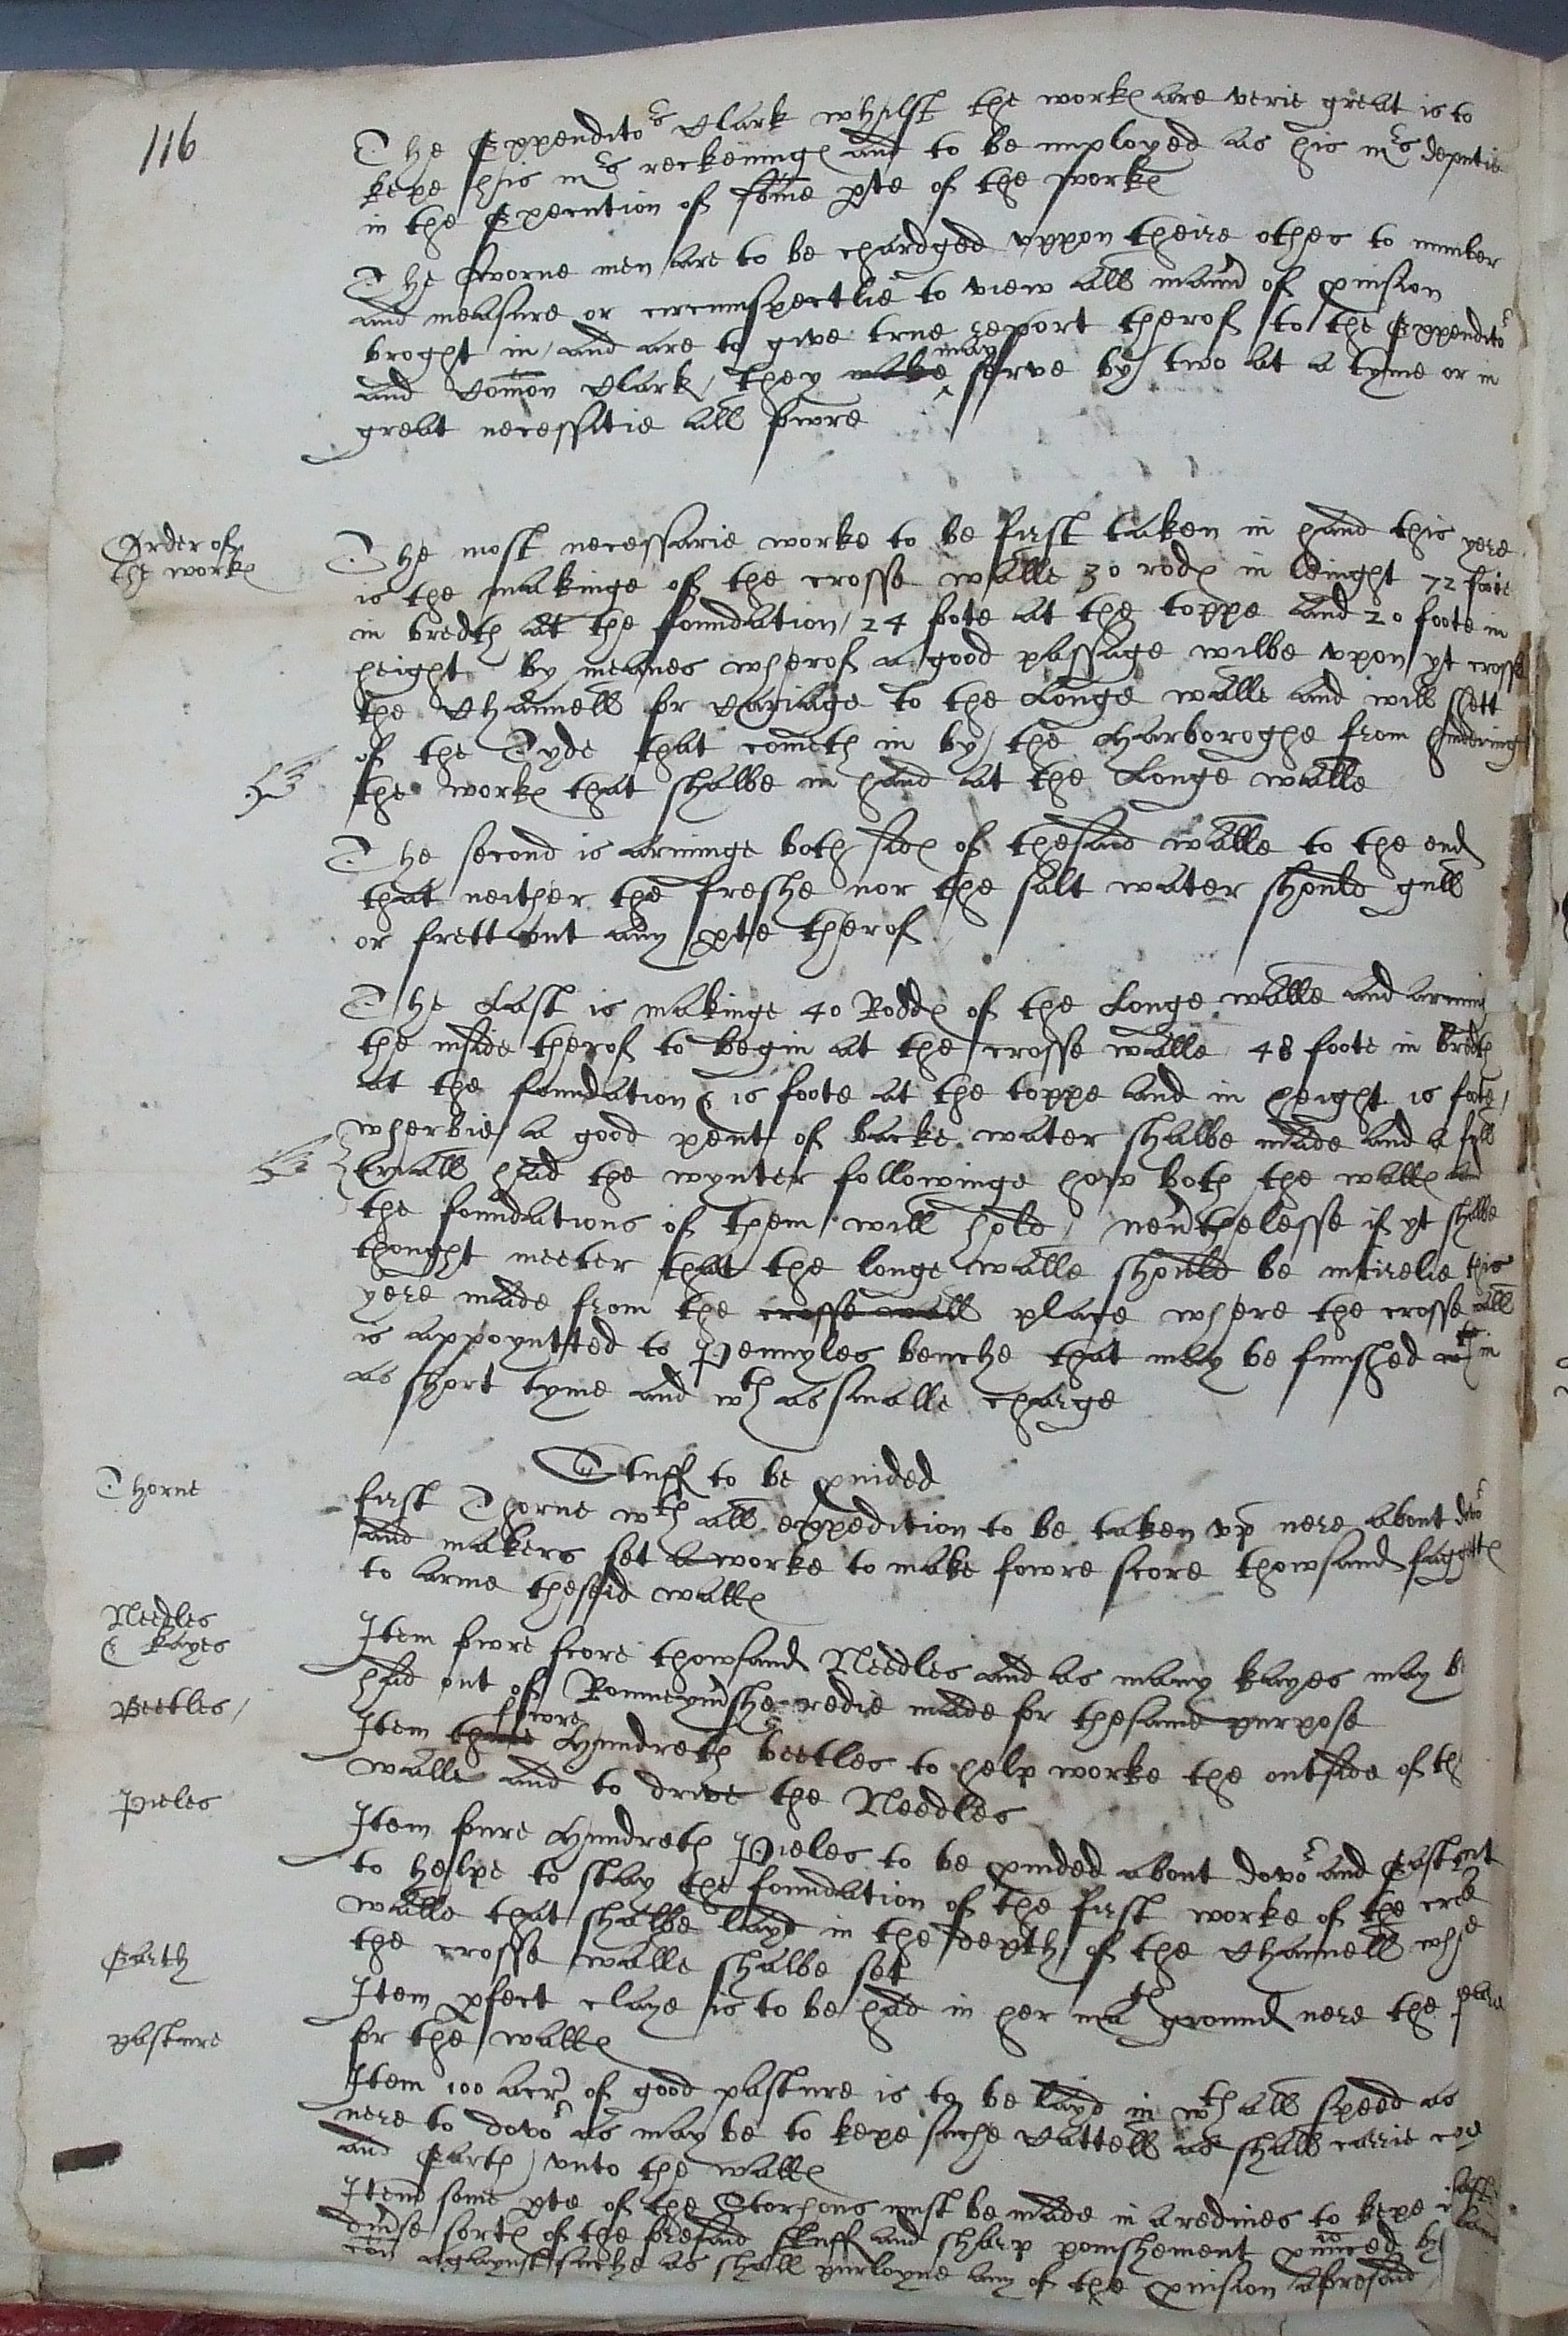 116
The Expenditors Clark whylst the workes are verie great is to
kepe his mrs reckeninges and to be imployed as his mrs deputie
in the Execution of some pte of the workes
The sworne men are to be chardged uppon theire othes to number
and measure or circumspectlie to view all manner of pvision
broght in / and are to give true report therof to the Expenditor
and Comon Clark / they may serve by two at a tyme or in
great necessitie all fowre
Order of
the workes
The most necessarie worke to be first taken in hand this yere
is the makinge of the crosse walle 30 rodes in leinght 72 foote
in bredth at the foundation / 24 fote at the toppe and 20 foote in
height by meanes wherof a good passage wilbe upon yt crosse
the Channell for Cariage to the Longe walle and will shett
of the Tyde that cometh in by the Harboroghe from hindering
the workes that shalbe in hand at the Longe walle
The second is arminge both sides of thesaid walle to the end
that neither the freshe nor the salt water should gull
or frett out any pte therof
The Last is makinge 40 Roddes of the Longe walle and arming
the inside therof to begin at the crosse walle 48 foote in bredth
at the foundation & 16 foote at the toppe and in height 16 foote /
wherbie a good pent of backe water shalbe made and a full
tryall had the wynter followinge how both the walles and
the foundations of them will hold / nevrthelesse if yt shalbe
thought meeter that the longe walle should be intirelie this
yere made from the crosse wall place where the crosse wall
is appoyntted to Pennyles benche that may be finished wth in
as short tyme and wth as smalle charge
Stuff to be pvided
Thorne
first Thorne wth all expedition to be taken up nere about dovor
and makers set a worke to make fowre score thowsand faggottes
to arme thesaid walles
Needles
& kayes
Item fowre score thowsand Needles and as many kayes may be
had out of Romneymrshe redie made for thesame purpose
Beetles /
Item fowre Hundreth beetles to help worke the outside of the
walle and to drive the Needles
Pieles
Item foure Hundreth Pieles to be pvided about dovor and Eastent
to helpe to stay the foundation of the first worke of the
walle that shalbe layd in the depth of the Channell
the crosse walle shalbe set
Earth
Item pfect claye is to be had in her mats ground nere the
for the walles
Pasture
Item 100 acres of good pasture is to be layd in wth all speed as
nere to dovor as may be to kepe suche Cattell as shall carrie
and Earth unto the walles
Item some pte of the Storhous must be made in aredines to kepe
divrse sortes of the foresaid stuff and sharp ponishement
agaynst suche as shall purloyne any of the pvision aforesaid